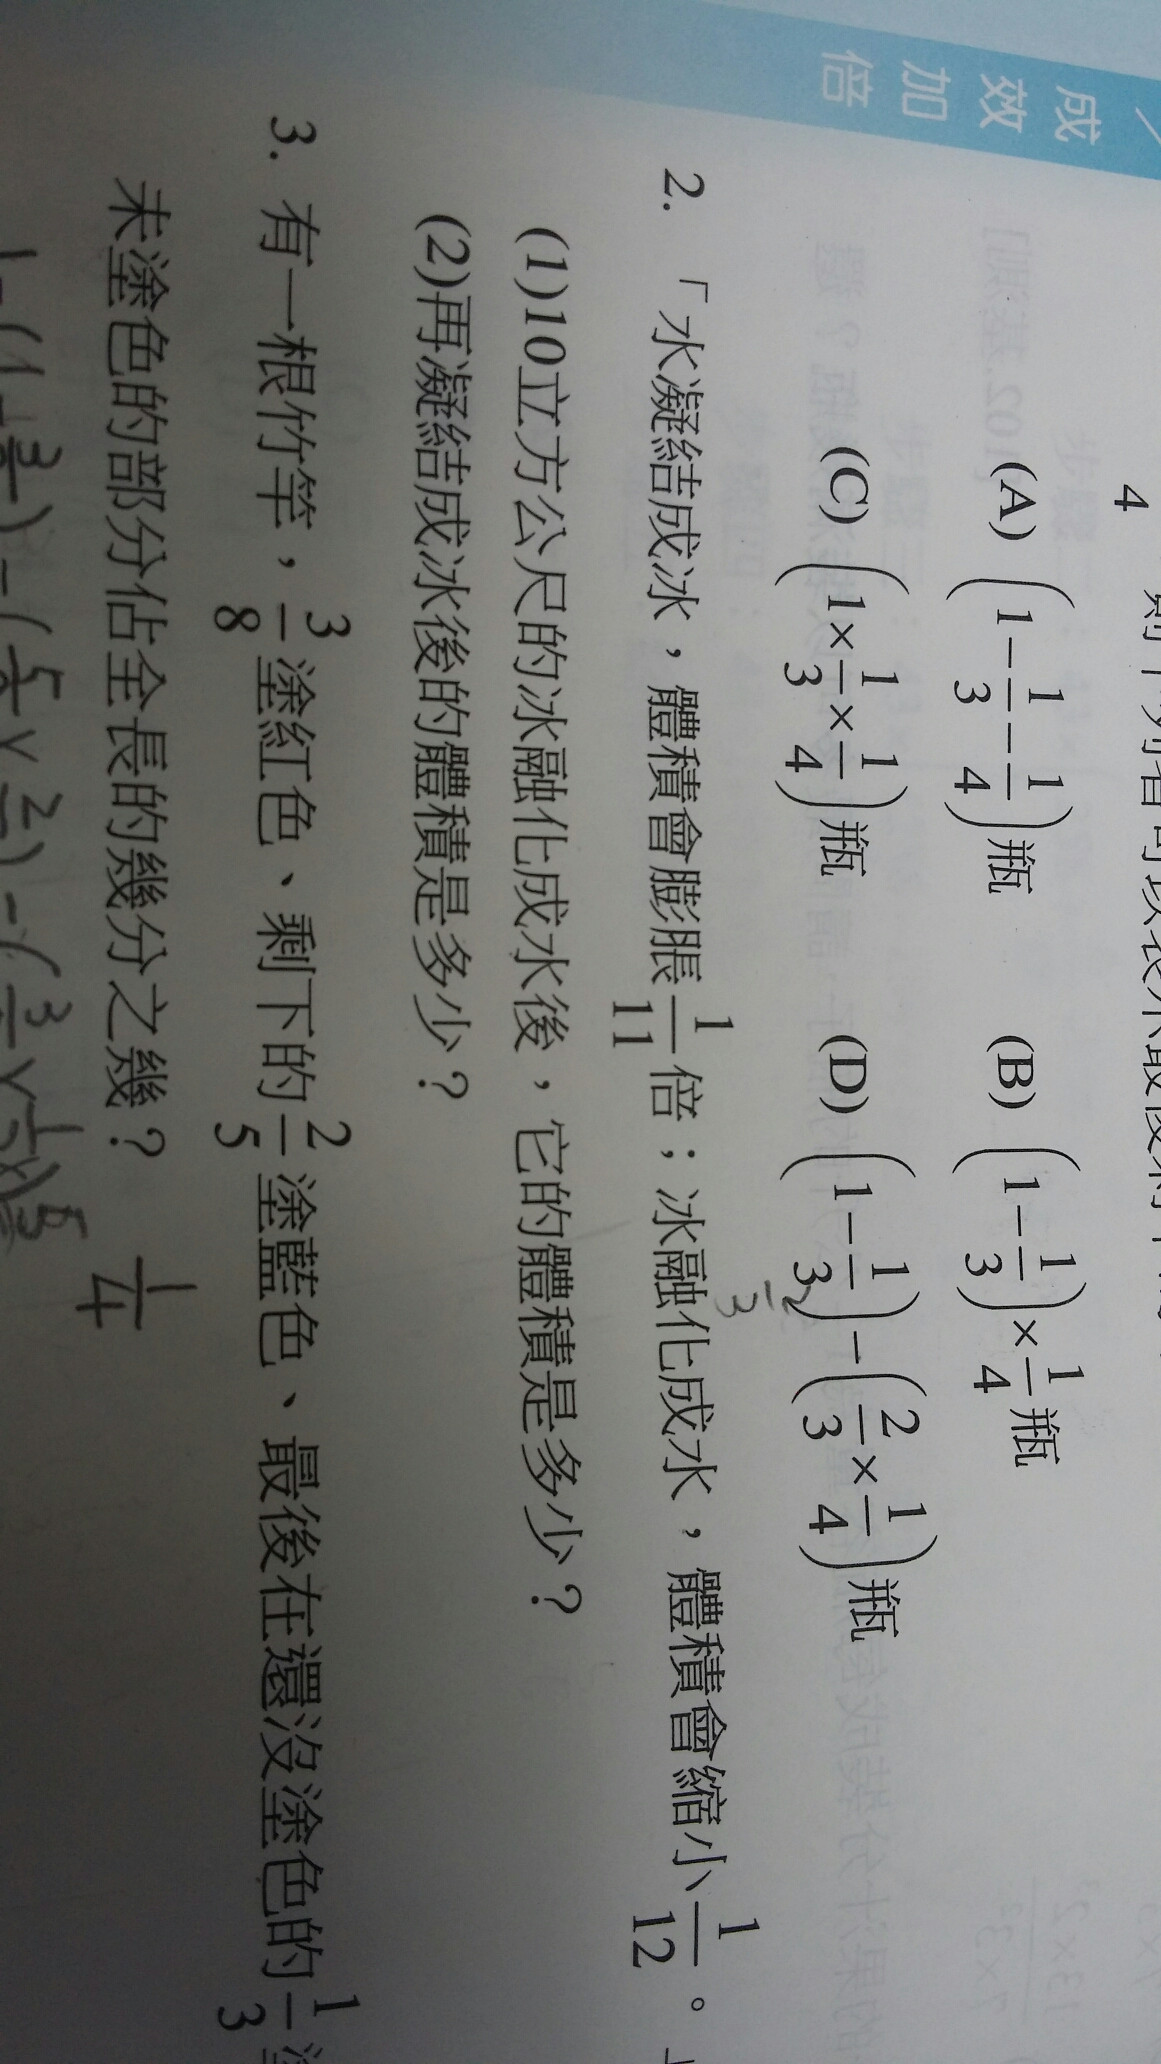 成效加倍
4
(A) (1－1/3－1/4)瓶 (B) (1－1/3)×1/4瓶
(C) (1×1/3×1/4)瓶 (D) (1－1/3)－(2/3×1/4)瓶
2/3
2. 「水凝結成冰，體積會膨脹1/11倍；冰融化成水，體積會縮小1/12。」
(1)10立方公尺的冰融化成水後，它的體積是多少？
(2)再凝結成冰後的體積是多少？
3. 有一根竹竿，3/8塗紅色、剩下的2/5塗藍色、最後在還沒塗色的1/3
未塗色的部分佔全長的幾分之幾？ 1/4